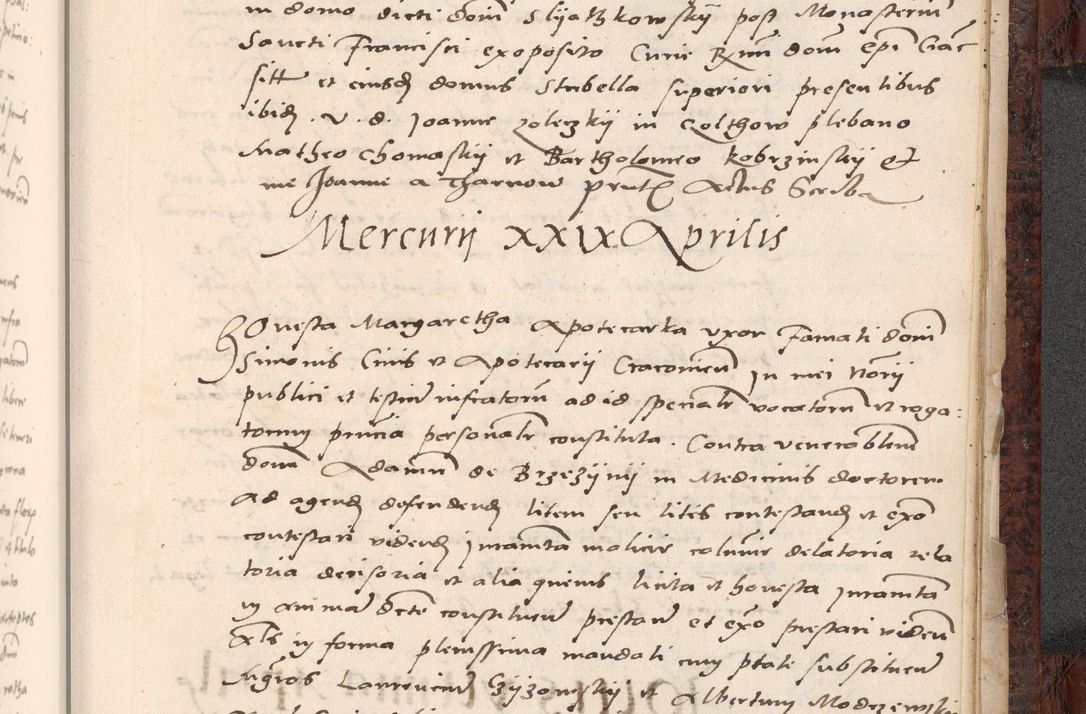 in domo dicti dom̄ Slijatzkowskij post Monasteriū
Sancti Francisci exoposito Curie Rm̄i dom̄ ep̄i Crac
sitt et eiusd̄ domus Stubella superiori presentibus
ibid̄ . v . d . Joanne zoleczkij in Czolthow plebano
Matheo Chomaskij et Bartholomeo Kobrzinskij et
me Joanne a Tharnow prn̄t Actus Scriba
Mercurij xxix Aprilis
HOnesta Margaretha Apotecarka vxor Famati dom̄
Simonis Ciuis et Apotecarij Cracouien̄ In mei Notrij
publici et testiū infrator̄u ad id specialr̄ vocator̄u et roga:
torum pn̄cia personalr̄ constituta . Contra venerablem̄
dom̄ Adamū de Brzezijnij in Medicinis doctorem
ad agend̄ defendend̄ litem seu lites contestand̄ et ex̄o
contestari vidend̄ Juramtā malicie calunie delatoria rela
toria decisoria et alia queuis licita et honesta Juramtā
in animā dc̄te constituen̄ prestan̄ et ex̄o prestari viden̄
Al̄s in forma plenissima mandati cum ptāte substituen̄
Mgr̄os Laurenciū Czijzowskij et Albertum Modrzewskij